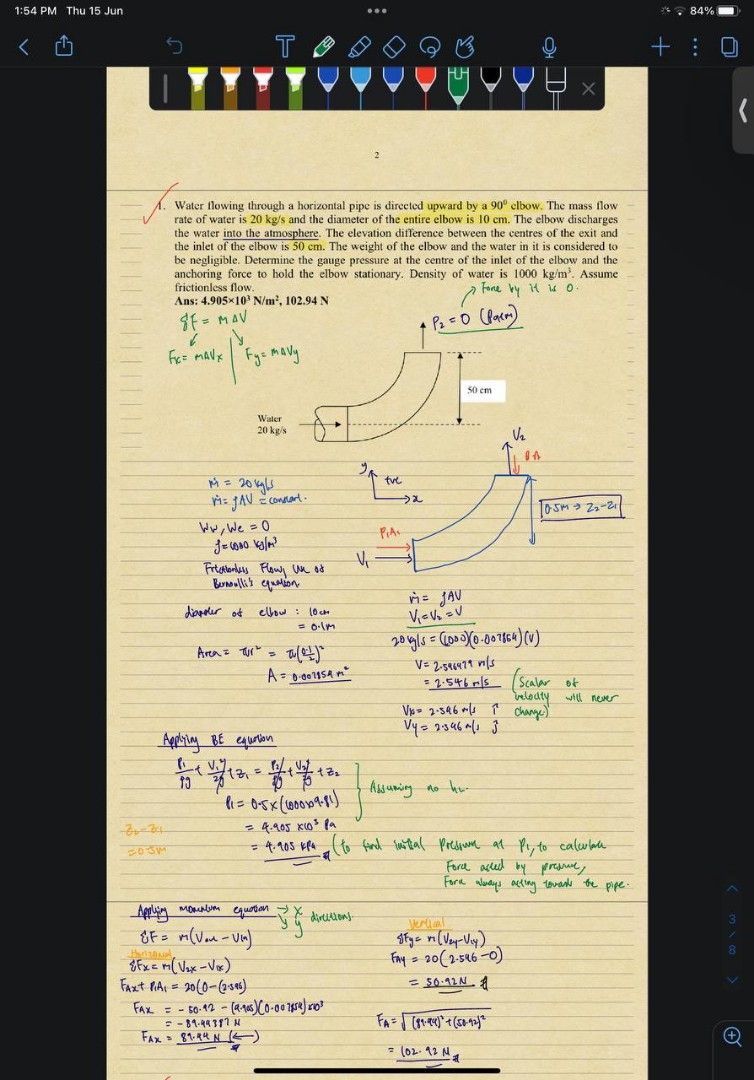 1:54 PM Thu 15 Jun
84%
T
2
1. Water flowing through a horizontal pipe is directed upward by a 90⁰ elbow. The mass flow
rate of water is 20 kg/s and the diameter of the entire elbow is 10 cm. The elbow discharges
the water into the atmosphere. The elevation difference between the centres of the exit and
the inlet of the elbow is 50 cm. The weight of the elbow and the water in it is considered to
be negligible. Determine the gauge pressure at the centre of the inlet of the elbow and the
anchoring force to hold the elbow stationary. Density of water is 1000 kg/m³. Assume
frictionless flow.
→ Force by it is 0.
Ans: 4.905×10³ N/m², 102.94 N
ΣF = ṁΔV
P₂ = 0 (Patm)
Fx = ṁΔVx | Fy = ṁΔVy
50 cm
Water
20 kg/s
V₂
y
+ve
x
ṁ = 20 kg/s
ṁ = ρAV = constant.
0.5m → Z₂-Z₁
Ww, We = 0
ρ = 1000 kg/m³
P₁A₁
V₁
Frictionless Flow, use of
Bernoulli's equation
diameter of elbow : 10cm
= 0.1m
Area = πr² = π(0.1/2)²
A = 0.007854 m²
ṁ = ρAV
V₁=V₂ = V
20 kg/s = (1000)(0.007854)(V)
V = 2.546479 m/s
= 2.546 m/s
(Scalar of
velocity will never
change)
Vx = 2.546 m/s
Vy = 2.546 m/s
Applying BE equation
P₁/ρg + V₁²/2g + Z₁ = P₂/ρg + V₂²/2g + Z₂
P₁ = 0.5 x (1000x9.81)
Assuming no hL.
= 4.905 x10³ Pa
Z₂-Z₁
= 0.5m
= 4.905 kPa
(to find initial Pressure at P₁, to calculate
Force acted by pressure,
Force always acting towards the pipe.
Applying momentum equation → x
y directions
ΣF = ṁ(Vout - Vin)
Horizontal
ΣFx = ṁ(V₂x - V₁x)
FAx + P₁A₁ = 20(0-(2.546)
FAx = -50.92 - (4.905)(0.007854) x10³
= -89.44387 N
FAx = 89.44 N (←)
Vertical
ΣFy = ṁ(V₂y - V₁y)
FAy = 20(2.546-0)
= 50.92N
FA = √(89.44)² + (50.92)²
= 102.92 N
3
/
8